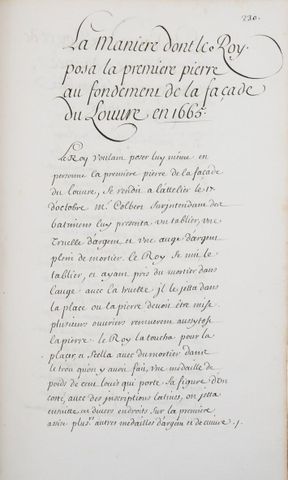 230.
La Maniere dont le Roy
posa la premiere pierre
au fondement de la façade
du Louure en 1665.
Le Roy voulant poser luy mesme en
personne la premiere pierre de la facade
du louure, se rendit a l'attelier le 17
d'octobre Mr. Colbert Surjntendant des
batimens luy presenta vn tablier, vne
Truelle d'argent et vne auge d'argent
plein de mortier. le Roy se mit le
tablier, et ayant pris du mortier dans
l'auge avec la truelle jl le jetta dans
la place ou la pierre devoit être mise
plusieurs ouvriers remuerent aussytost
la pierre. le Roy la toucha pour la
placer, et scella avec du mortier dans
le trou qu'on y avoit fait, vne medaille de
poids de cent louis qui porte sa figure d'un
costé, avec des inscriptions latines, on jetta
ensuitte en divers endroits sur la premiere
assise plusrs autres medailles d'argent et de cuivre ./.